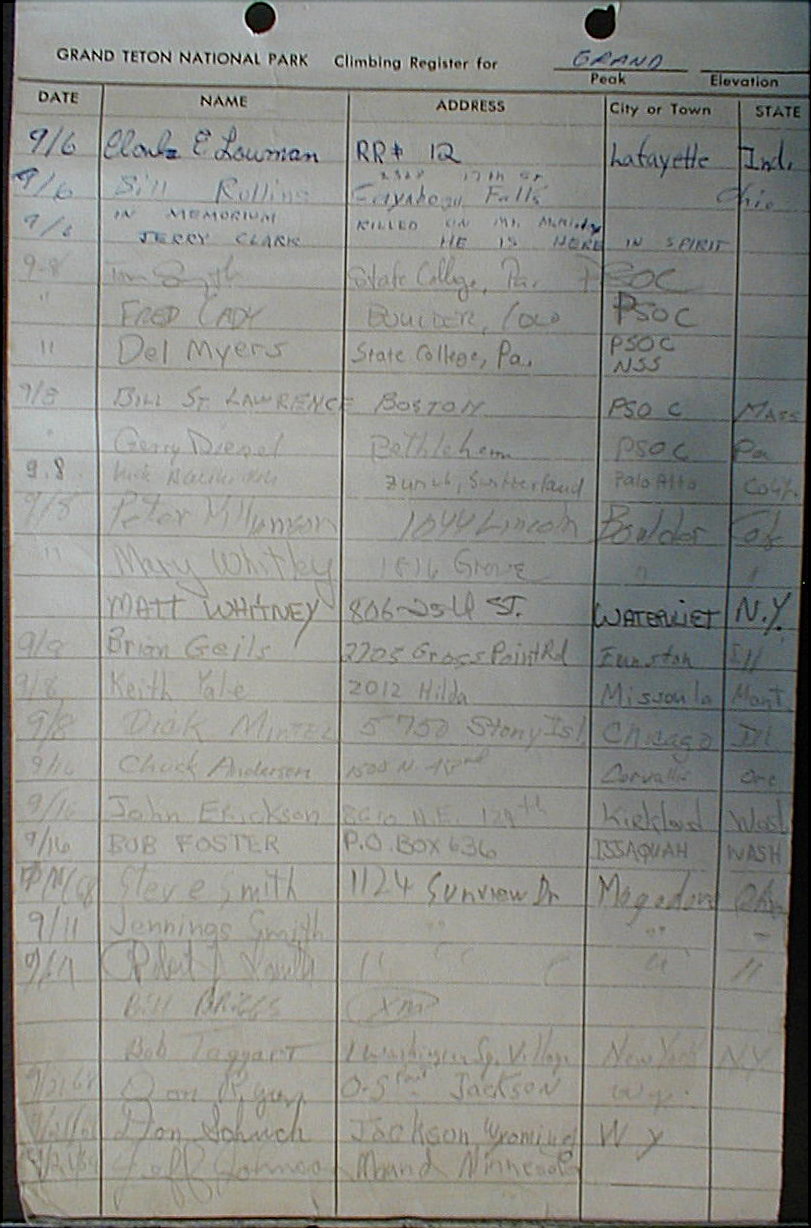 GRAND TETON NATIONAL PARK Climbing Register for GRAND
Peak Elevation
DATE NAME ADDRESS City or Town STATE
9/6 E Lowman RR# 12 Lafayette Ind.
9/6 Bill Rollins 17th St Falls Ohio
9/6 IN MEMORIUM KILLED ON Mt.
JERRY CLARK HE IS HERE IN SPIRIT
9-8 Tom Smyth State College, Pa. PSOC
" FRED CADY BOULDER, COLO PSOC
" Del Myers State College, Pa. PSOC
NSS
9/8 BILL ST LAWRENCE BOSTON PSOC MASS
" Gerry Bethlehem PSOC Pa
9.8 Zurich, Switzerland Palo Alto Calif.
9/8 Peter 1044 Lincoln Boulder
" Mary Whitley 1816 Grove " "
MATT WHITNEY 806-25th ST. WATERVLIET N.Y.
9/8 Brian Geils 2705 Gross Point Rd Ill
9/8 Keith Yale 2012 Hilda Missoula Mont
9/8 Dick 5750 Stony Isl Chicago Ill
9/16 Chuck Anderson Corvallis Ore
9/16 John Erickson N.E. 129th Kirkland Wash
9/16 BOB FOSTER P.O. BOX 636 ISSAQUAH WASH
Steve Smith 1124 Sunview Dr Mogadore Ohio
9/11 Jennings Smith " " "
Robert J Smith " " " "
BILL BRIGGS
Bob Taggart 1 Washington Sq. Village New York N.Y.
9/21/68 Don Jackson
Don Schuch Jackson Wyoming Wy
Jeff Johnson Mound Minnesota